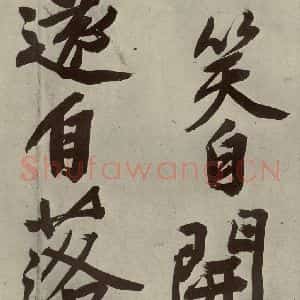 笑自開
自落
Shufawang.CN